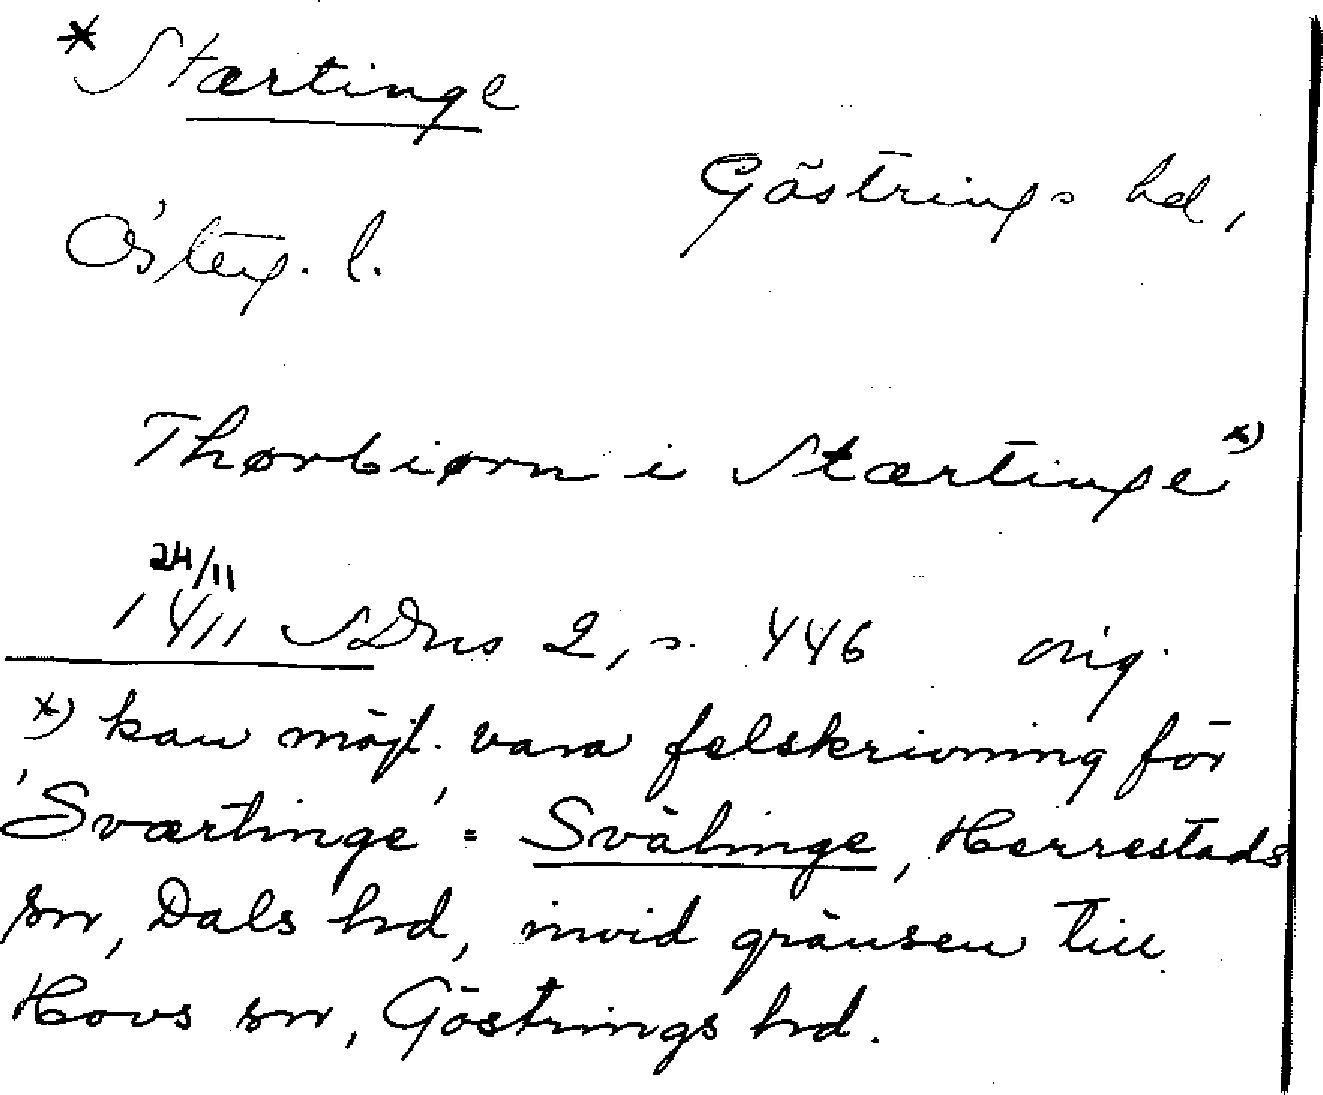 * Stærtinge
Göstrings hd,
Österg. l.
Thørbiørn i Stærtinge x)
24/11
1411 SDns 2, s. 446 orig.
x) kan möjl. vara felskrivning för
'Sværtinge' = Svälinge, Herrestads
sn, Dals hd, invid gränsen till
Hovs sn, Göstrings hd.